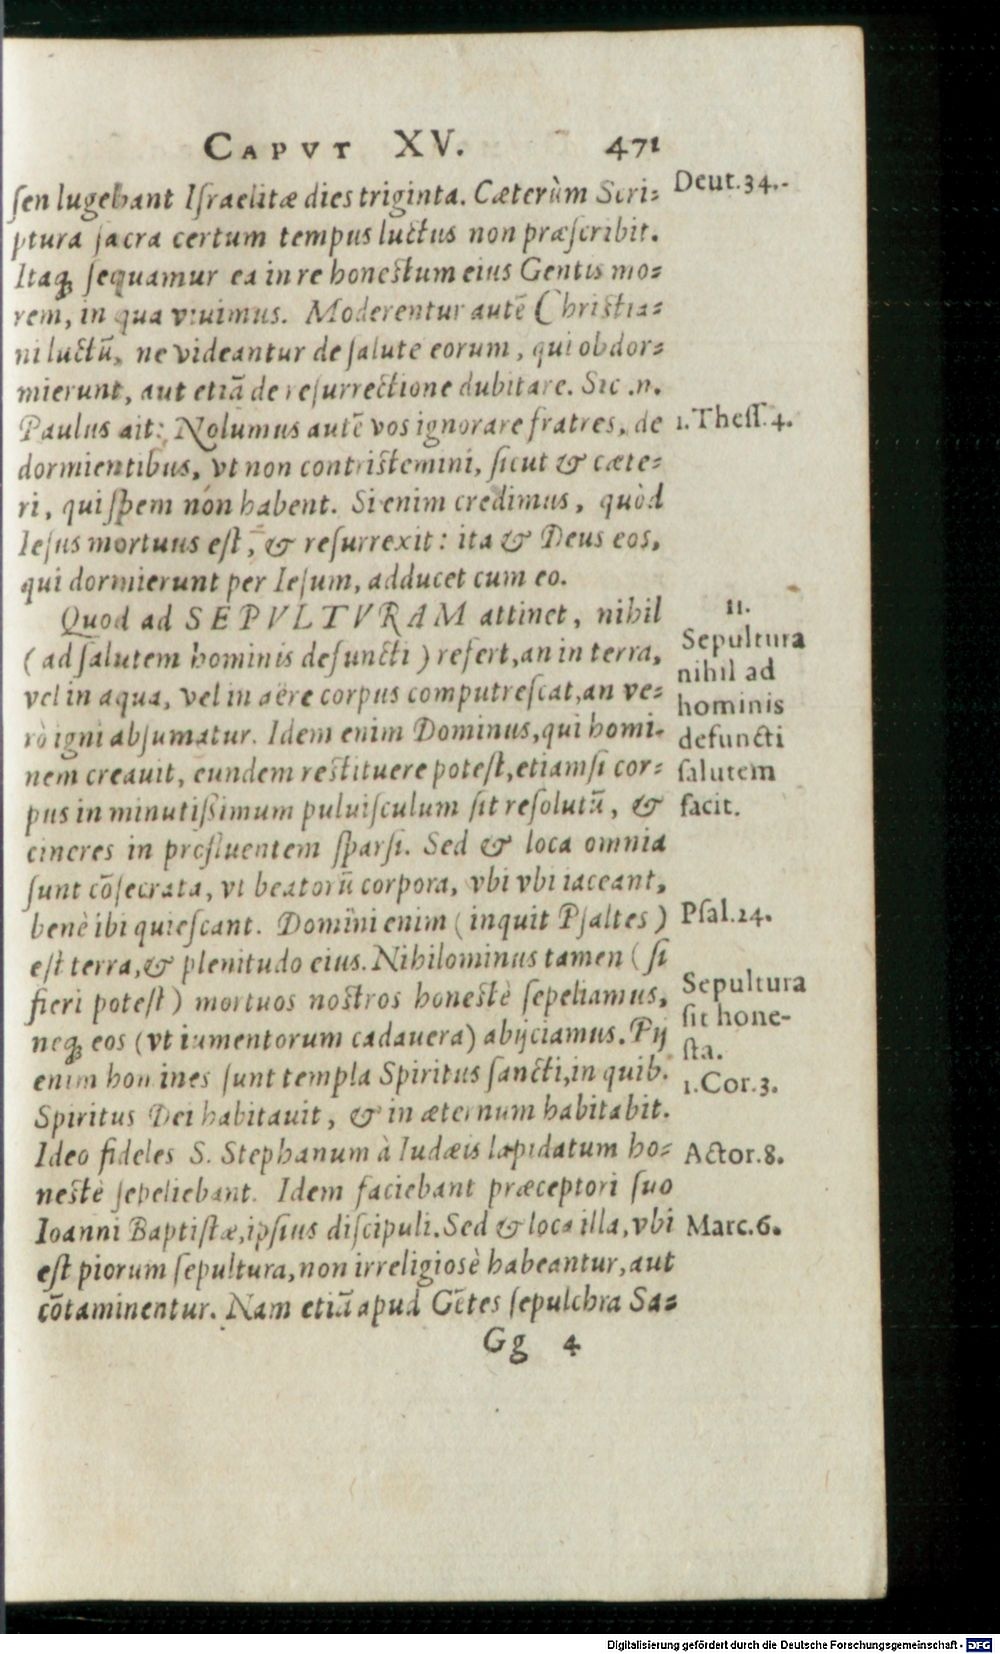 CAPVT XV. 471
ſen lugebant Iſraelitæ dies triginta. Cæterùm Scri- Deut.34.
ptura ſacra certum tempus luctus non præſcribit.
Itaq; ſequamur ea in re honestum eius Gentis mo-
rem, in qua viuimus. Moderentur autē Christia-
ni luctū, ne videantur de ſalute eorum, qui obdor-
mierunt, aut etiā de reſurrectione dubitare. Sic .n.
Paulus ait: Nolumus autē vos ignorare fratres, de 1.Theſſ.4.
dormientibus, vt non contristemini, ſicut & cæte-
ri, qui ſpem non habent. Si enim credimus, quòd
Ieſus mortuus eſt, & reſurrexit: ita & Deus eos,
qui dormierunt per Ieſum, adducet cum eo.
Quod ad SEPVLTVRAM attinet, nihil 11.
(ad ſalutem hominis defuncti) refert, an in terra, Sepultura
vel in aqua, vel in aëre corpus computreſcat, an ve- nihil ad
rò igni abſumatur. Idem enim Dominus, qui homi- hominis
nem creauit, eundem restituere poteſt, etiamſi cor- defuncti
pus in minutiſſimum puluiſculum ſit reſolutū, & ſalutem
cineres in profluentem ſparſi. Sed & loca omnia facit.
ſunt cōſecrata, vt beatorū corpora, vbi vbi iaceant,
benè ibi quieſcant. Domini enim (inquit Pſaltes) Pſal.24.
eſt terra, & plenitudo eius. Nihilominus tamen (ſi
fieri poteſt) mortuos nostros honestè ſepeliamus, Sepultura
neq; eos (vt iumentorum cadauera) abijciamus. Pij ſit hone-
enim homines ſunt templa Spiritus ſancti, in quib. ſta.
Spiritus Dei habitauit, & in æternum habitabit. 1.Cor.3.
Ideo fideles S. Stephanum à Iudæis lapidatum ho- Actor.8.
nestè ſepeliebant. Idem faciebant præceptori ſuo
Ioanni Baptiſtæ, ipſius diſcipuli. Sed & loca illa, vbi Marc.6.
eſt piorum ſepultura, non irreligiosè habeantur, aut
cōtaminentur. Nam etiā apud Gētes ſepulchra Sa-
Gg 4
Digitalisierung gefördert durch die Deutsche Forschungsgemeinschaft - DFG